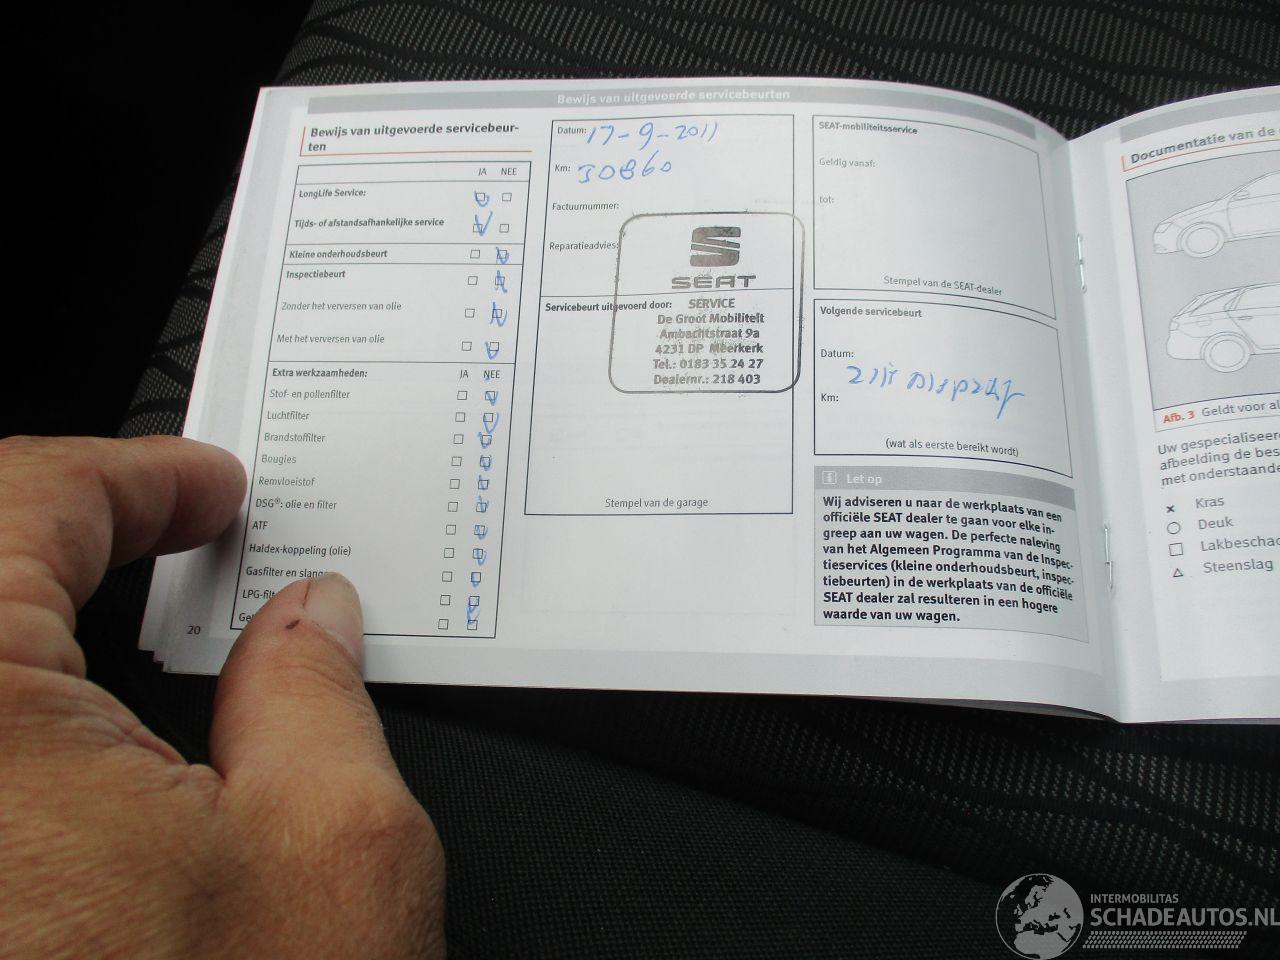 Bewijs van uitgevoerde servicebeurten
Bewijs van uitgevoerde servicebeur-
ten
JA NEE
LongLife Service:
Tijds- of afstandsafhankelijke service
Kleine onderhoudsbeurt
Inspectiebeurt
Zonder het verversen van olie
Met het verversen van olie
Extra werkzaamheden: JA NEE
Stof- en pollenfilter
Luchtfilter
Brandstoffilter
Bougies
Remvloeistof
DSG®: olie en filter
ATF
Haldex-koppeling (olie)
Gasfilter en slang
LPG-filt
Ge
20
Datum: 17-9-2011
Km: 30860
Factuurnummer:
Reparatieadvies:
Servicebeurt uitgevoerd door:
SEAT
SERVICE
De Groot Mobiliteit
Ambachtstraat 9a
4231 DP Meerkerk
Tel.: 0183 35 24 27
Dealernr.: 218 403
Stempel van de garage
SEAT-mobiliteitsservice
Geldig vanaf:
tot:
Stempel van de SEAT-dealer
Volgende servicebeurt
Datum:
Km:
(wat als eerste bereikt wordt)
i Let op
Wij adviseren u naar de werkplaats van een
officiële SEAT dealer te gaan voor elke in-
greep aan uw wagen. De perfecte naleving
van het Algemeen Programma van de Inspec-
tieservices (kleine onderhoudsbeurt, inspec-
tiebeurten) in de werkplaats van de officiële
SEAT dealer zal resulteren in een hogere
waarde van uw wagen.
Documentatie van de
Afb. 3 Geldt voor al
Uw gespecialiseer
afbeelding de bes
met onderstaande
Kras
Deuk
Lakbeschad
Steenslag
INTERMOBILITAS
SCHADEAUTOS.NL